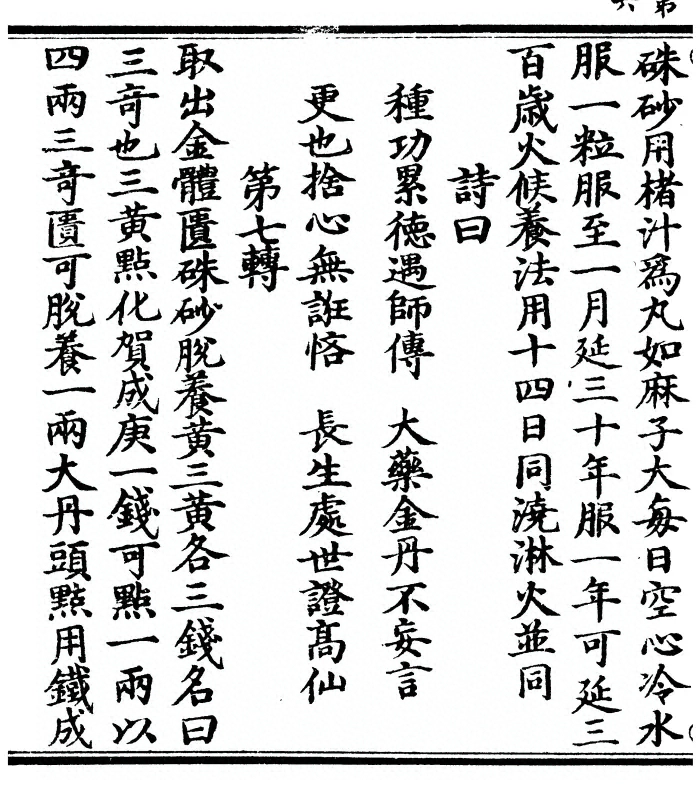 硃砂用楮汁爲丸如麻子大每日空心冷水
服一粒服至一月延三十年服一年可延三
百歲火候養法用十四日同澆淋火並同
詩曰
種功累德遇師傳　大藥金丹不妄言
更也捨心無誑悋　長生處世證高仙
第七轉
取出金體匱硃砂脫養黃三黃各三錢名曰
三奇也三黃點化賀成庚一錢可點一兩以
四兩三奇匱可脫養一兩大丹頭點用鐵成